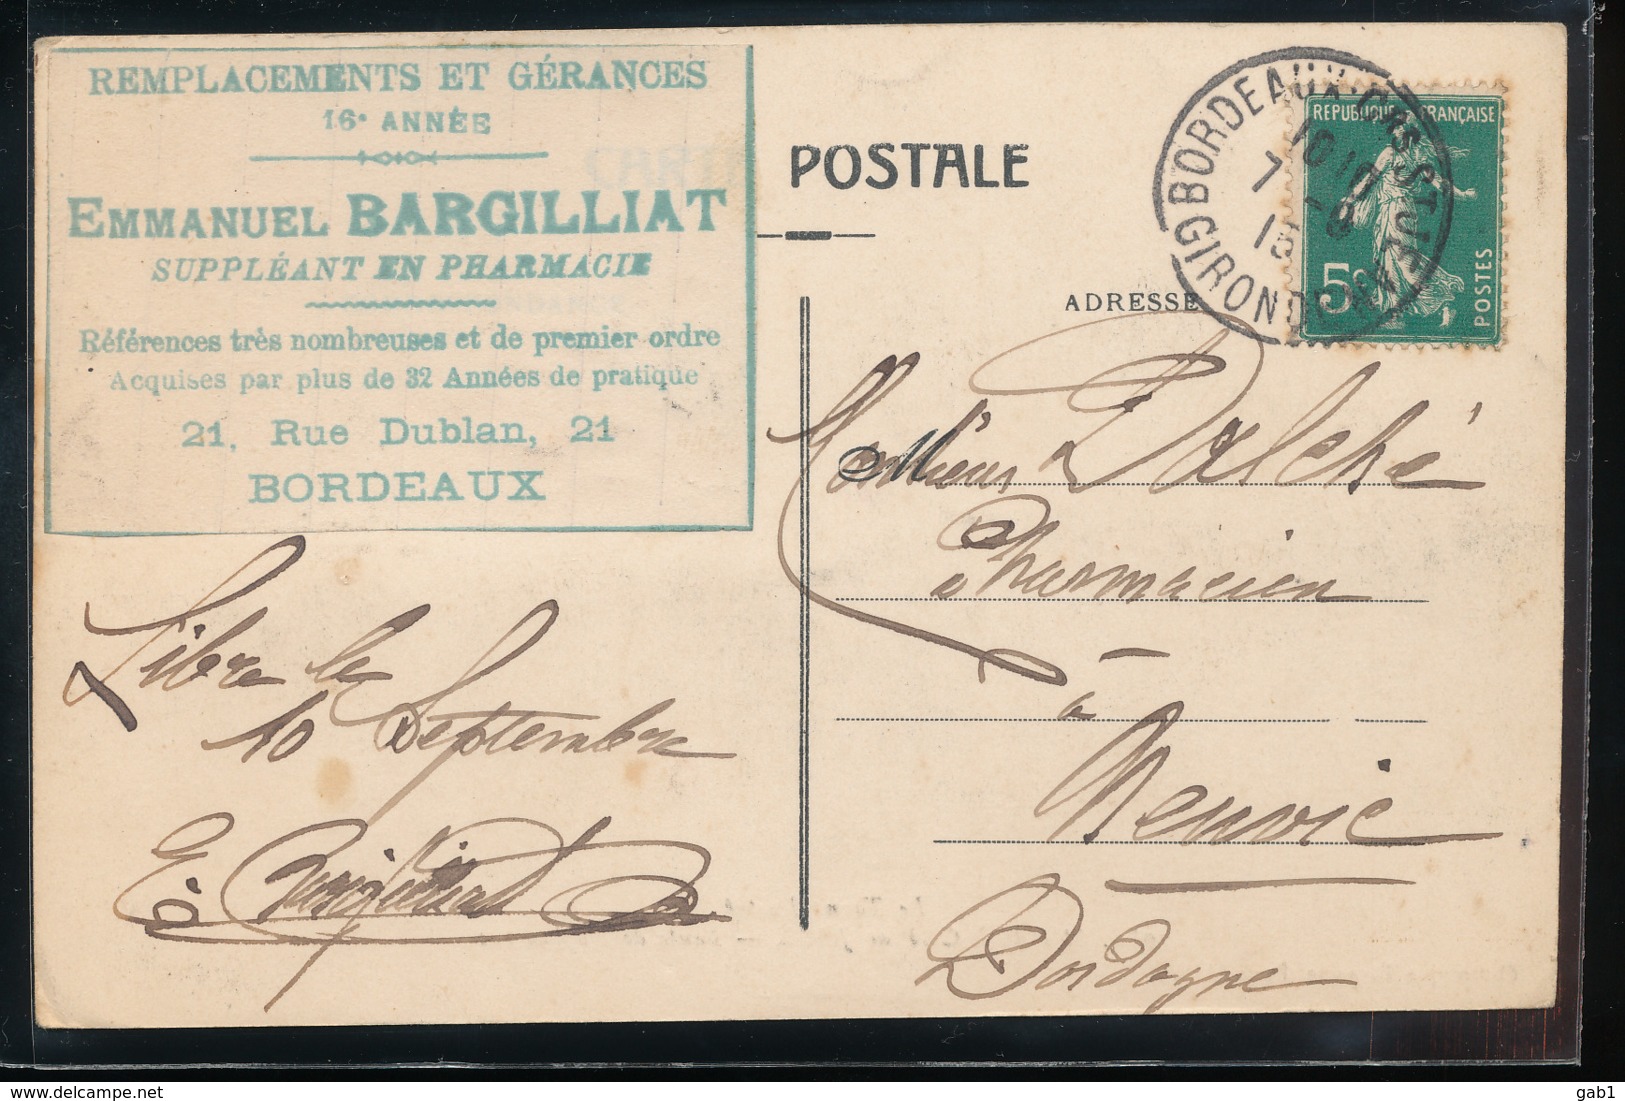 REMPLACEMENTS ET GÉRANCES
16e ANNÉE
EMMANUEL BARGILLIAT
SUPPLÉANT EN PHARMACIE
Références très nombreuses et de premier ordre
Acquises par plus de 32 Années de pratique
21, Rue Dublan, 21
BORDEAUX
Libre le
10 Septembre
E. Bargilliat
POSTALE
ADRESSE
BORDEAUX
GIRONDE
REPUBLIQUE FRANÇAISE
5c
POSTES
Monsieur Dalché
Pharmacien
à
Neuvic
Dordogne
gab1